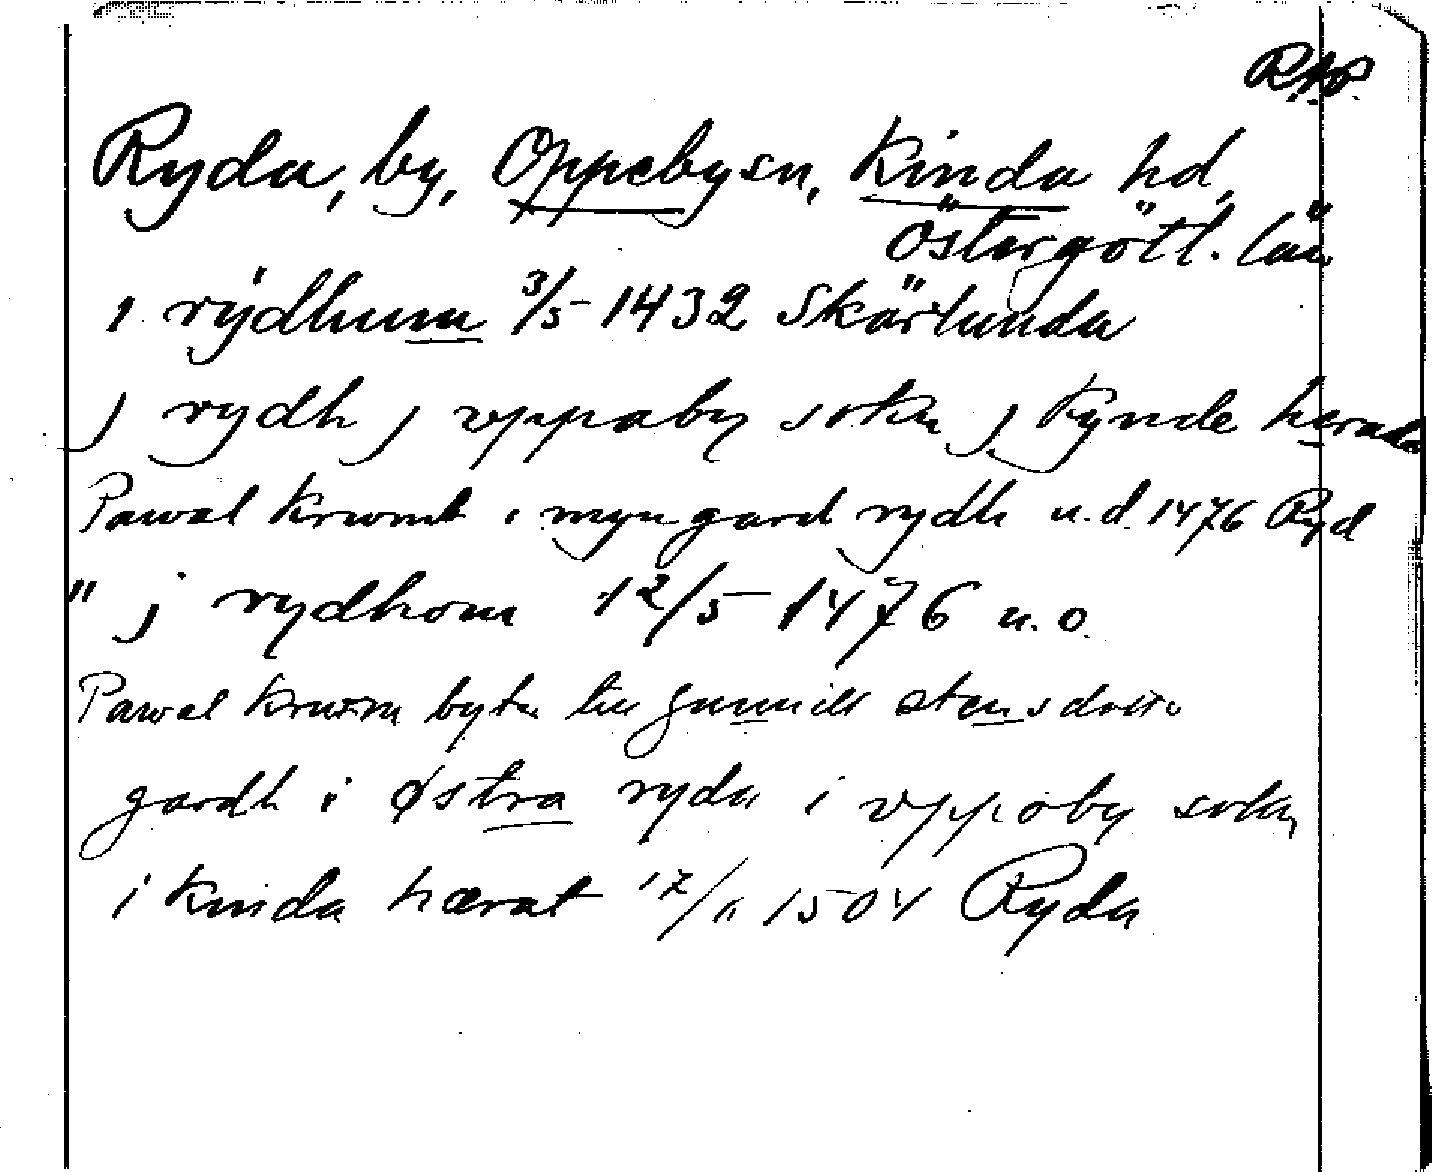 RAP.
Ryda, by, Oppeby sn, Kinda hd,
Östergötl. län
i rydhum 3/5 1432 Skärlunda
j rydh j vppaby sokn j Kynde hærade
Pawal Krwmb i myn gard rydh u.d. 1476 Ryd
" j rydhom 12/5 1476 u.o.
Pawal Krwm byte Gunnill stensdotter
gardh i østra ryda i vppoby sokn
i kinda hærat 17/11 1504 Ryda